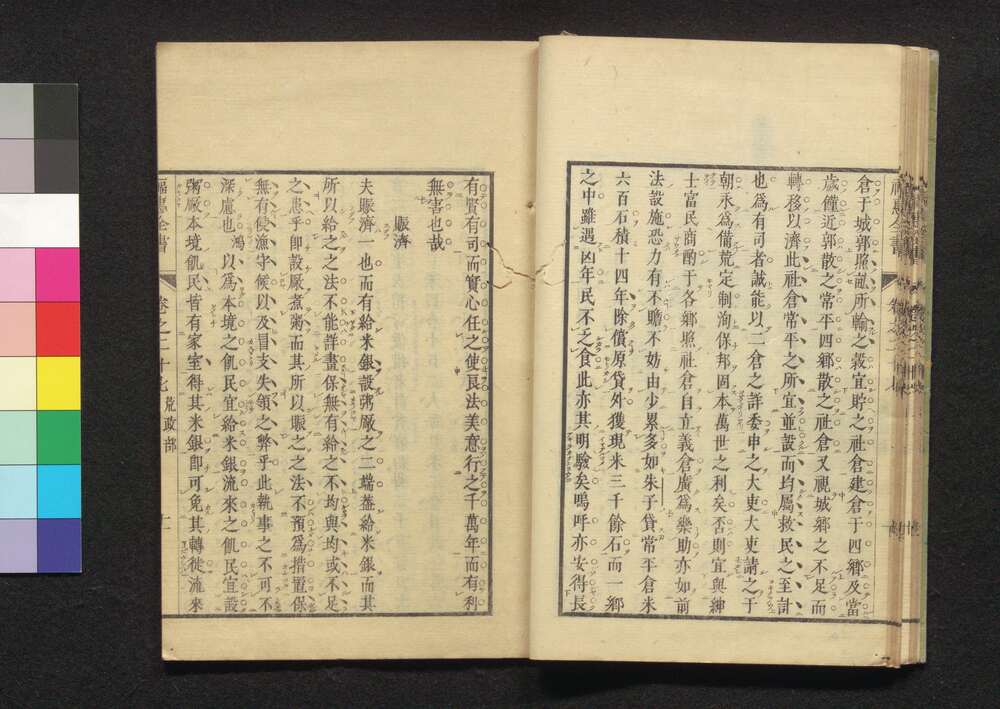 倉于城郭照畝所輸之穀宜貯之社倉建倉于四鄉及當
歲饉近郭散之常平四鄉散之社倉又視城鄉之不足而
轉移以濟此社倉常平之所宜並設而均屬救民之至計
也爲有司者誠能以二倉之詳委申之大吏大吏請之于
朝永爲備荒定制洵保邦固本萬世之利矣否則宜與紳
士富民商酌于各鄉照社倉自立義倉廣爲樂助亦如前
法設施恐力有不贍不妨由少累多如朱子貸常平倉米
六百石積十四年除償原貸外獲現米三千餘石而一鄉
之中雖遇凶年民不乏食此亦其明驗矣嗚呼亦安得長
有賢有司而實心任之使良法美意行之千萬年而有利
無害也哉
賑濟
夫賑濟一也而有給米銀設粥厰之二端葢給米銀而其
所以給之之法不能詳盡保無有給之不均與均或不足
之患乎卽設厰煮粥而其所以賑之之法不預爲措置保
無有使漁守候以及冒支失領之弊乎此執事之不可不
深慮也鴻以爲本境之飢民宜給米銀流來之飢民宜設
粥厰本境飢民皆有家室得其米銀卽可免其轉徙流來
福惠全書 卷之二十七 荒政部 十一